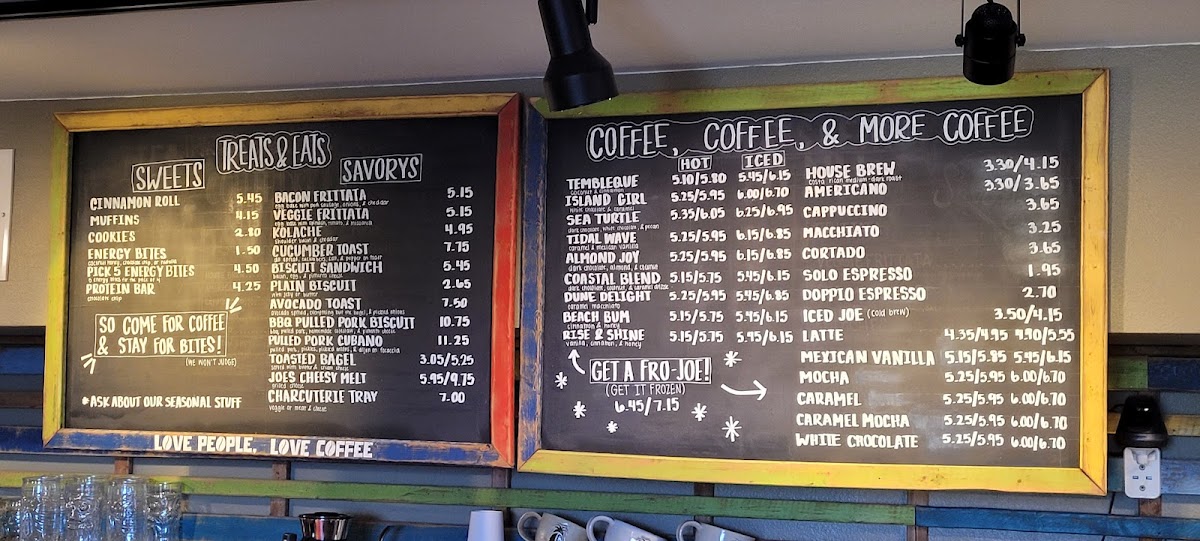 TREATS & EATS
SWEETS
CINNAMON ROLL 5.45
MUFFINS 4.15
COOKIES 2.80
ENERGY BITES 1.50
coconut honey, chocolate chip, or
PICK 5 ENERGY BITES 4.50
PROTEIN BAR 4.25
chocolate chip
SO COME FOR COFFEE
& STAY FOR BITES!
(WE WON'T JUDGE)
*ASK ABOUT OUR SEASONAL STUFF
SAVORYS
BACON FRITTATA 5.15
VEGGIE FRITTATA 5.15
KOLACHE 4.95
CUCUMBER TOAST 7.75
BISCUIT SANDWICH 5.45
bacon, egg, & pimento cheese
PLAIN BISCUIT 2.65
with jelly or butter
AVOCADO TOAST 7.50
BBQ PULLED PORK BISCUIT 10.75
PULLED PORK CUBANO 11.25
TOASTED BAGEL 3.05/5.25
JOES CHEESY MELT 5.95/9.75
grilled cheese
CHARCUTERIE TRAY 7.00
veggie or meat & cheese
LOVE PEOPLE, LOVE COFFEE
COFFEE, COFFEE, & MORE COFFEE
HOT ICED
TEMBLEQUE 5.10/5.80 5.45/6.15
coconut & cinnamon
ISLAND GIRL 5.25/5.95 6.00/6.70
white chocolate & caramel
SEA TURTLE 5.35/6.05 6.25/6.95
dark chocolate, white chocolate, & pecan
TIDAL WAVE 5.25/5.95 6.15/6.85
caramel & mexican vanilla
ALMOND JOY 5.25/5.95 6.15/6.85
dark chocolate, almond, & coconut
COASTAL BLEND 5.15/5.75 5.45/6.15
dark chocolate, coconut, & caramel drizzle
DUNE DELIGHT 5.25/5.95 5.95/6.85
caramel macchiato
BEACH BUM 5.15/5.75 5.45/6.15
cinnamon & honey
RISE & SHINE 5.15/5.75 5.45/6.15
vanilla, cinnamon, & honey
GET A FRO-JOE!
(GET IT FROZEN)
6.45/7.15
HOUSE BREW 3.30/4.15
costa rican medium-dark roast
AMERICANO 3.30/3.65
CAPPUCCINO 3.65
MACCHIATO 3.25
CORTADO 3.65
SOLO ESPRESSO 1.95
DOPPIO ESPRESSO 2.70
ICED JOE (cold brew) 3.50/4.15
LATTE 4.35/4.95 4.90/5.55
MEXICAN VANILLA 5.15/5.85 5.45/6.15
MOCHA 5.25/5.95 6.00/6.70
CARAMEL 5.25/5.95 6.00/6.70
CARAMEL MOCHA 5.25/5.95 6.00/6.70
WHITE CHOCOLATE 5.25/5.95 6.00/6.70